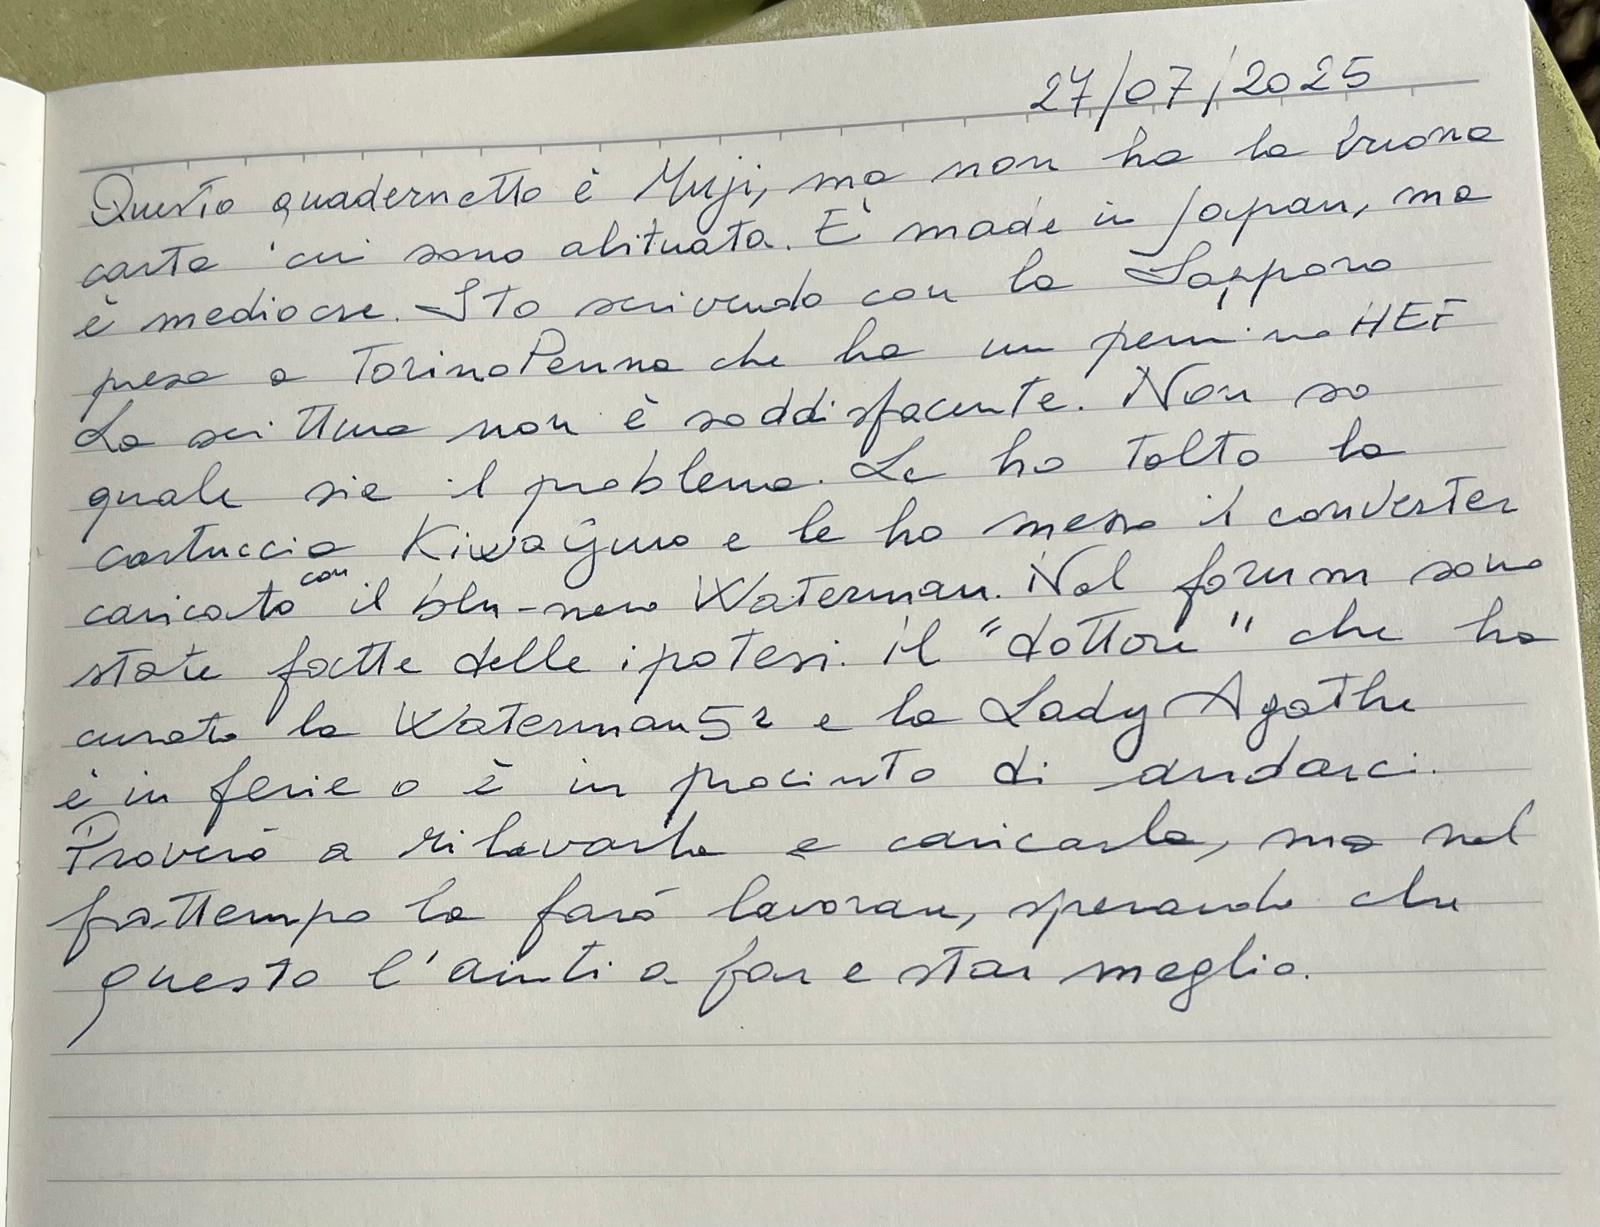 27/07/2025
Questo quadernetto è Muji, ma non ha la buona
carta cui sono abituata. E' made in Japan, ma
è mediocre. Sto scrivendo con la Sapporo
presa a TorinoPenna che ha un pennino HEF
La scrittura non è soddisfacente. Non so
quale sia il problema. Le ho tolto la
cartuccia KiwaGuro e le ho messo il converter
caricato con il blu-nero Waterman. Nel forum sono
state fatte delle ipotesi. il "dottore" che ha
curato la Waterman 52 e la Lady Agathe
è in ferie o è in procinto di andarci.
Proverò a rilavarla e caricarla, ma nel
frattempo la farò lavorare, sperando che
questo l'aiuti a far e star meglio.